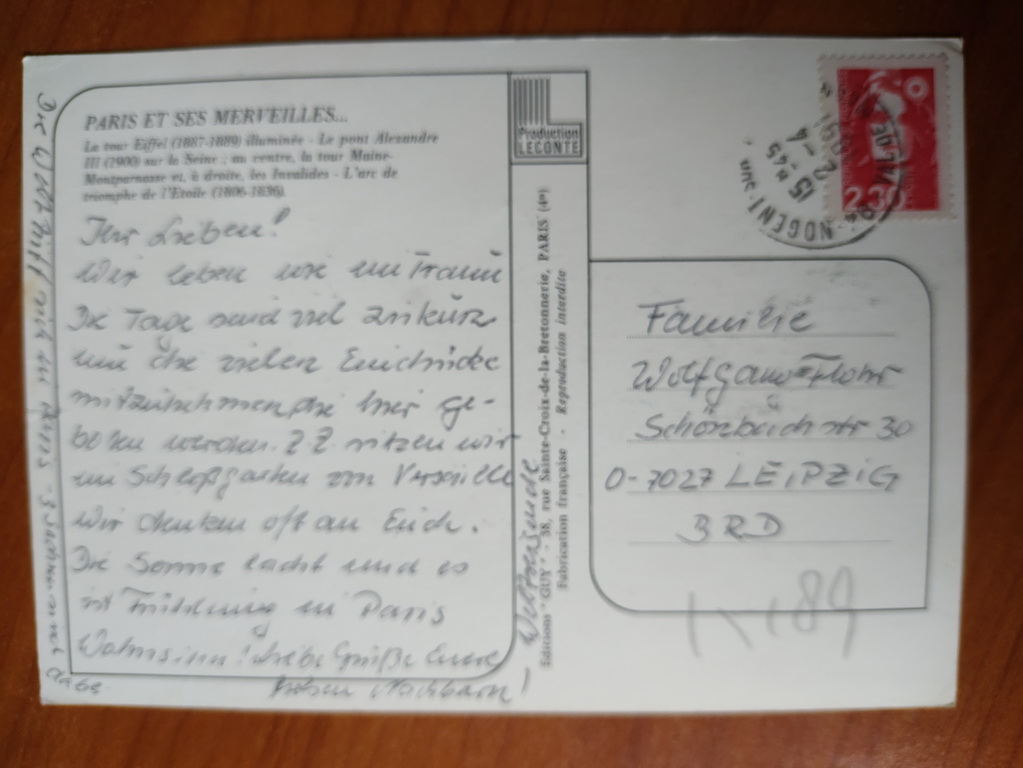 PARIS ET SES MERVEILLES...
La tour Eiffel (1887-1889) illuminée - Le pont Alexandre
III (1900) sur la Seine ; au centre, la tour Maine-
Montparnasse et, à droite, les Invalides - L'arc de
triomphe de l'Etoile (1806-1836).
Ihr Lieben!
Wir leben wie im Traum
Die Tage sind viel zu kurz
um die vielen Eindrücke
mitzunehmen die hier ge-
boten werden. Z.Z. sitzen wir
im Schloßgarten von Versaille
Wir denken oft an Euch.
Die Sonne lacht und es
ist Frühling in Paris
Wahnsinn! Liebe Grüße Eure
lieben Nachbarn!
Die Welt ist
in Paris - 3 Sachsen
Weltreisende
Production
LECONTE
Editions "GUY" - 38, rue Sainte-Croix-de-la-Bretonnerie, PARIS (4e)
Fabrication française - Reproduction interdite
NOGENT
15 H 45
2,30
Familie
Wolfgang Flohr
Schönbachstr 30
O-7027 LEIPZIG
BRD